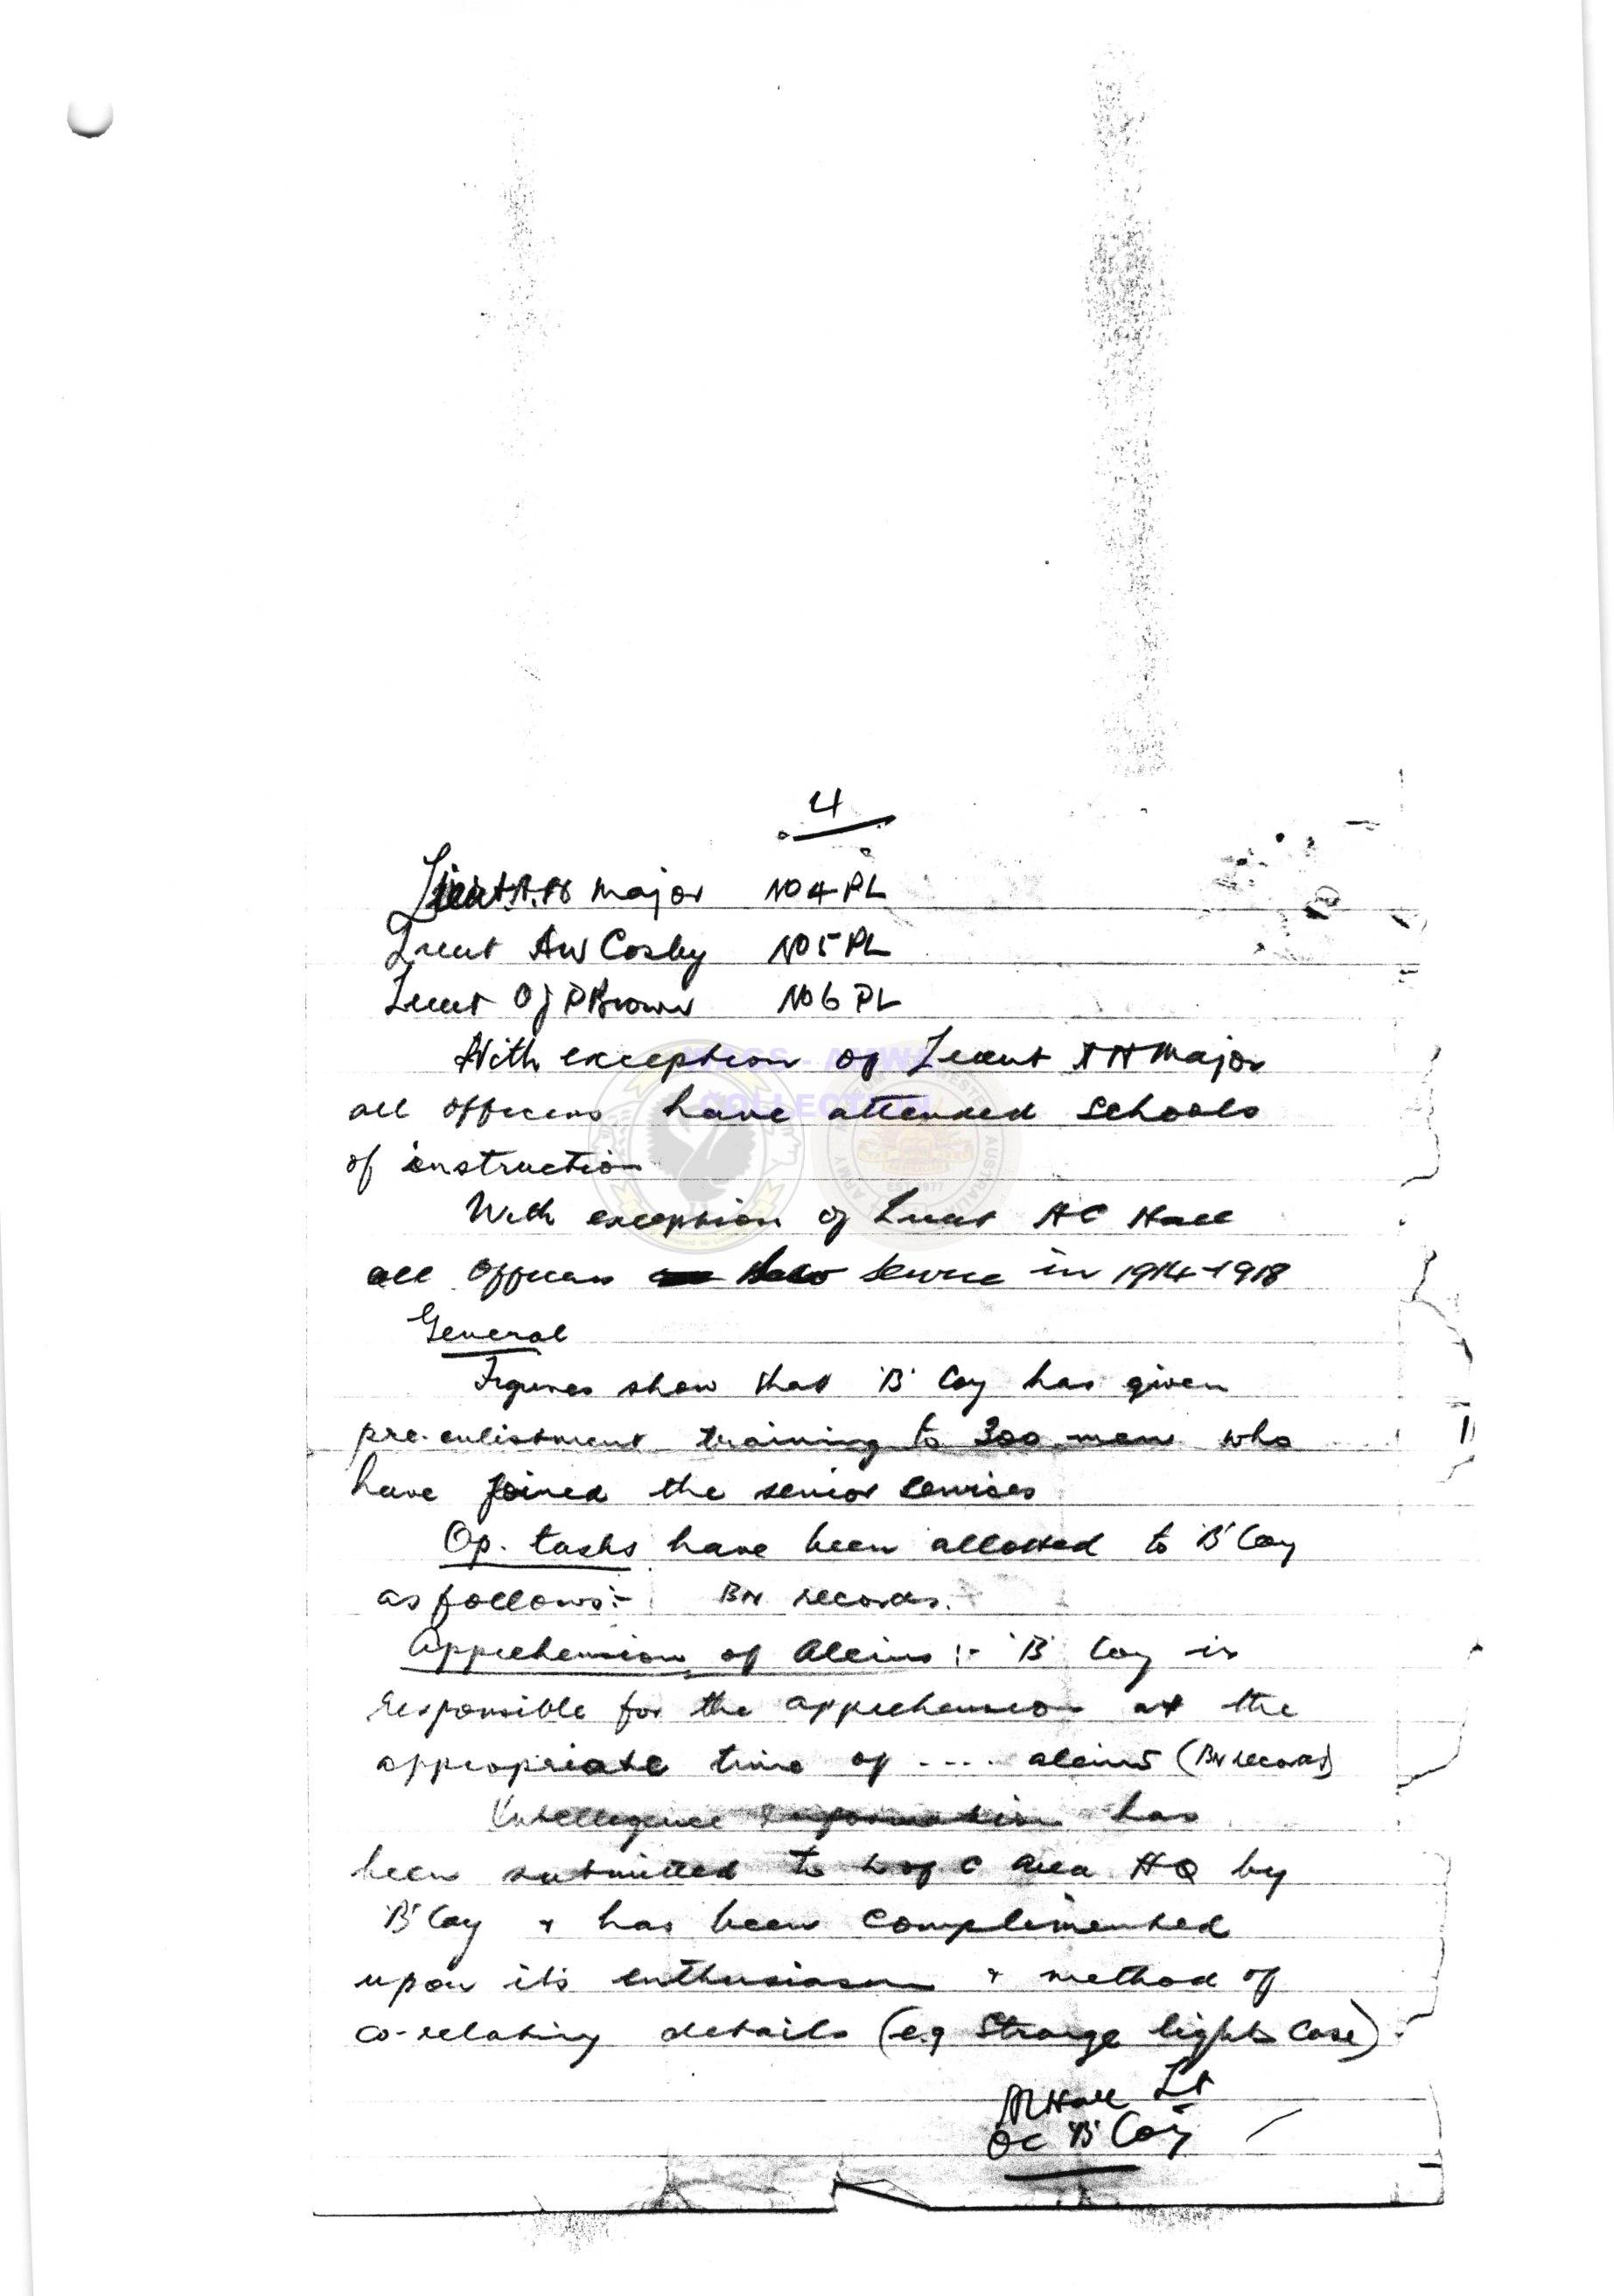 4
Lieut. A. H Major NO 4 PL
Lieut AW Cosby NO 5 PL
Lieut O J P Brown NO 6 PL
With exception of Lieut A H Major
all officers have attended schools
of instruction
With exception of Lieut AC Hall
all officers service in 1914-1918
General
Figures show that 'B' Coy has given
pre-enlistment training to 300 men who
have joined the senior services
Op. tasks have been allotted to 'B' Coy
as follows:- BN records.
Apprehension of Aleins :- 'B' Coy is
responsible for the apprehension at the
appropriate time of .... aleins (BN records)
Intellegence information has
been submitted to L of C Area HQ by
'B' Coy + has been complimented
upon it's enthusiasm + method of
co-relating details (e.g Strange lights Case)
AC Hall Lt
OC 'B' Coy
WASS - AMWA
COLLECTION